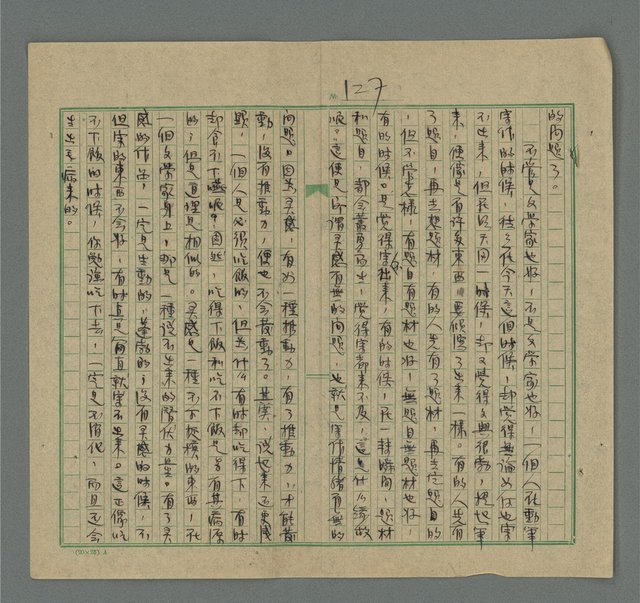 127
的問題了。
不管是文學家也好，不是文學家也好，一個人在動筆
寫作的時候，往往在今天這個時候，却覺得無論如何也寫
不出來，但在明天同一時候，却又覺得文興很動，提起筆
來，便像是有許多東西要傾瀉了出來一樣。有的人先有
了題目，再去想題材，有的人先有了題材，再去定題目的
，但不管怎樣，有題目有題材也好，無題目無題材也好，
有的時候，只是覺得寫不出來，有的時候，在一轉瞬間，題材
和題目，却會蓬勇而出，覺得寫都來不及，這是什么緣故
呢。這便是所謂灵感有無的問題，也就是寫作情緒有無的
問題。因為灵感，有如一種推動力，有了推動力，才能發
動，沒有推動力，便也不会發動了。其实，說起來不要感
題，一個人是必須吃飯的，但為什么有時却吃得下，有時
却会不下嚥呢？因此，吃得下飯和吃不下飯是各有其病原
的，但是道理是相似的。灵感是一種不可捉摸的東西，在
一個文學家身上，那是一種說不出來的潛伏力量。有了灵
感的作品，一定是生動的，蓬勃的，沒有灵感的時候，不
但寫的東西不会好，有時直是簡直就寫不出來。這正像吃
不下飯的時候，你勉強吃下去，一定是不消化，而且还会
生出毛病來的。
(20×25) A